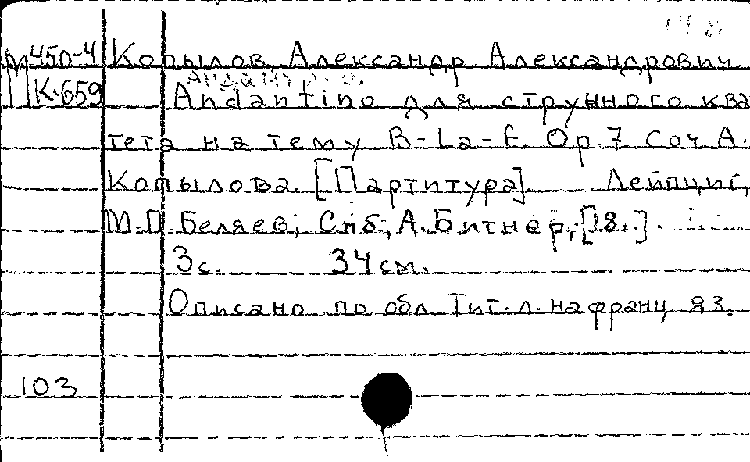 М450-4 Копылов Александр Александрович
К-659 Andantino для струнного ква
тета на тему B-La-f. Op 7 Соч А.
Копылова. [Партитура]. Лейпциг,
М.П. Беляев; Спб, А. Битнер, [18..].
3с. 34см.
Описано по обл. Тит. л. на франц яз.
103